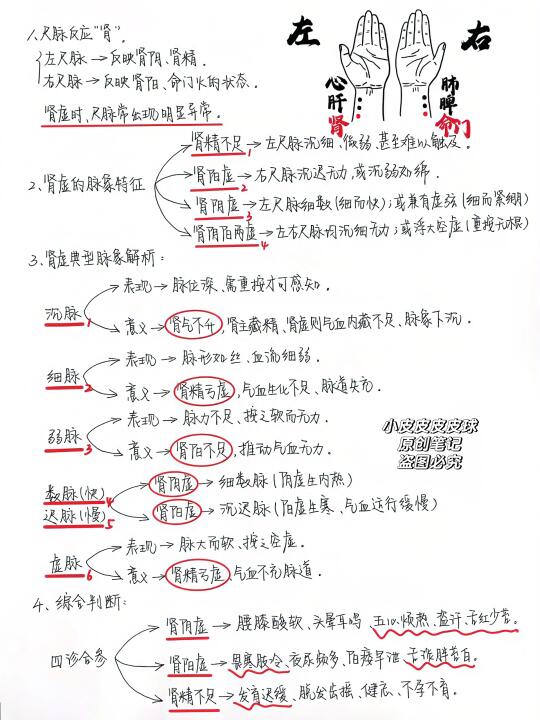 1、尺脉反应“肾”.
左尺脉→反映肾阴、肾精.
右尺脉→反映肾阳、命门火的状态.
肾虚时、尺脉常出现明显异常.
左
右
心
肝
肾
肺
脾
命门
2、肾虚的脉象特征
肾精不足1→左尺脉沉细、微弱、甚至难以触及.
肾阳虚2→右尺脉沉迟无力,或沉弱如绵.
肾阴虚3→左尺脉细数(细而快);或兼有虚弦(细而紧绷)
肾阴阳两虚4→左右尺脉均沉细无力;或浮大空虚(重按无根)
3、肾虚典型脉象解析:
沉脉1
表现→脉位深、需重按才可感知.
意义→肾气不升,肾主藏精、肾虚则气血内藏不足、脉象下沉.
细脉2
表现→脉形如丝、血流细弱.
意义→肾精亏虚,气血生化不足、脉道失充.
弱脉3
表现→脉力不足、按之软而无力.
意义→肾阳不足,推动气血无力.
数脉(快)4
迟脉(慢)5
肾阴虚→细数脉(阴虚生内热)
肾阳虚→沉迟脉(阳虚生寒、气血运行缓慢)
虚脉6
表现→脉大而软、按之空虚.
意义→肾精亏虚,气血不充脉道.
小皮皮皮皮球
原创笔记
盗图必究
4、综合判断:
四诊合参
肾阴虚→腰膝酸软、头晕耳鸣、五心烦热、盗汗、舌红少苔.
肾阳虚→畏寒肢冷、夜尿频多、阳痿早泄、舌淡胖苔白.
肾精不足→发育迟缓、脱发齿摇、健忘、不孕不育.